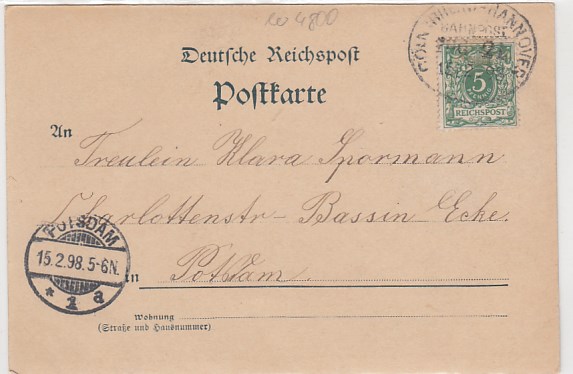 4800
Deutsche Reichspost
Postkarte
CÖLN HANNOVER
BAHNPOST
5
REICHSPOST
An
Freulein Klara Spormann
Charlottenstr- Bassin Ecke.
POTSDAM
15.2.98.5-6N.
* 1 a
in Potsdam.
Wohnung
(Straße und Hausnummer)